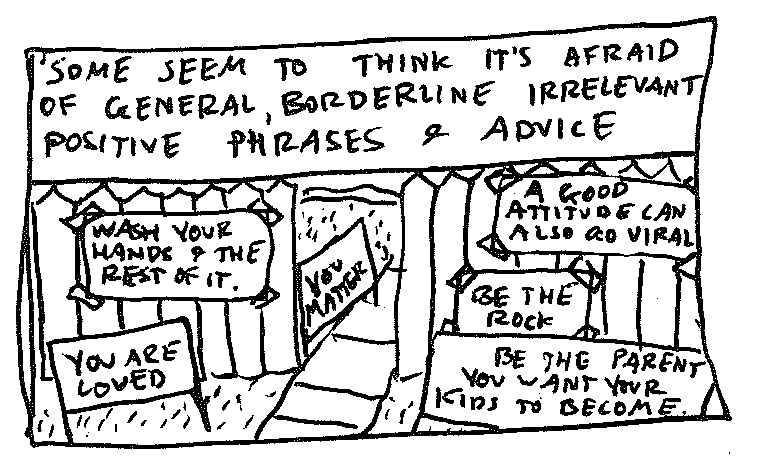 SOME SEEM TO THINK IT'S AFRAID
OF GENERAL, BORDERLINE IRRELEVANT
POSITIVE PHRASES & ADVICE
WASH YOUR
HANDS & THE
REST OF IT.
YOU ARE
LOVED
YOU
MATTER
A GOOD
ATTITUDE CAN
ALSO GO VIRAL
BE THE
ROCK
BE THE PARENT
YOU WANT YOUR
KIDS TO BECOME.